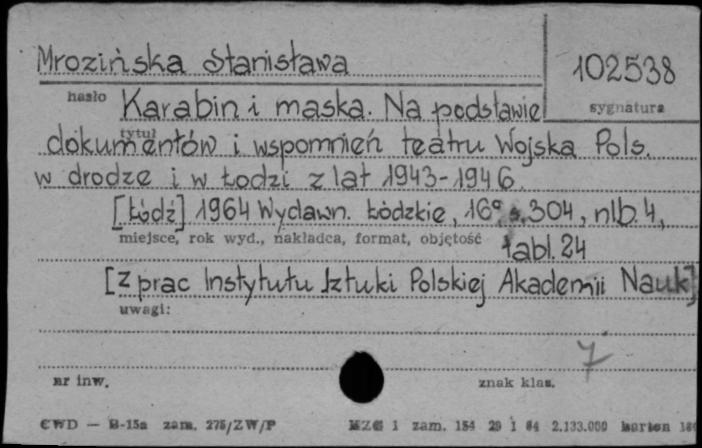 Mrozińska Stanisława
102538
hasło
sygnatura
Karabin i maska. Na podstawie
tytuł
dokumentów i wspomnień teatru Wojska Pols.
w drodze i w Łodzi z lat 1943-1946.
[Łódź] 1964 Wydawn. Łódzkie, 16° s. 304, nlb. 4,
miejsce, rok wyd., nakładca, format, objętość
tabl. 24
[z prac Instytutu Sztuki Polskiej Akademii Nauk]
uwagi:
7
nr inw.
znak klas.
CWD — B-15a zam. 275/ZW/P
MZG 1 zam. 154 29 1 64 2.133.000 karton